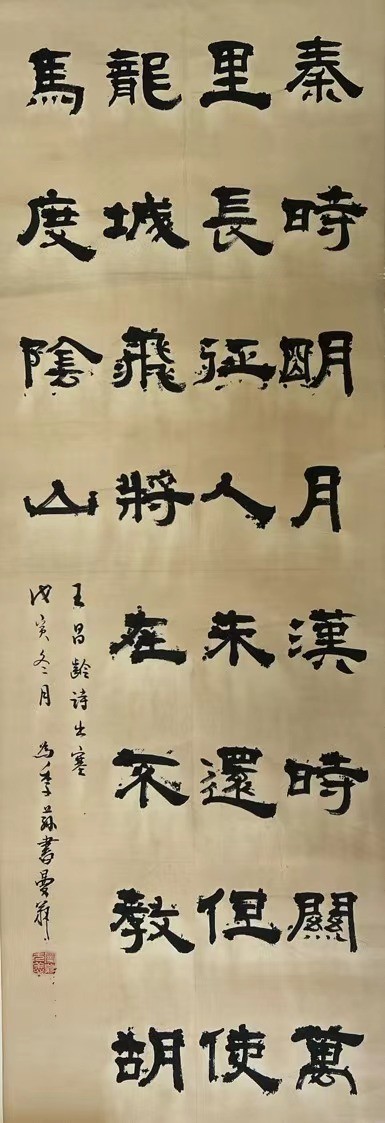 秦時明月漢時關萬
里長征人未還但使
龍城飛將在不教胡
馬度陰山
王昌齡詩出塞
戊寅冬月